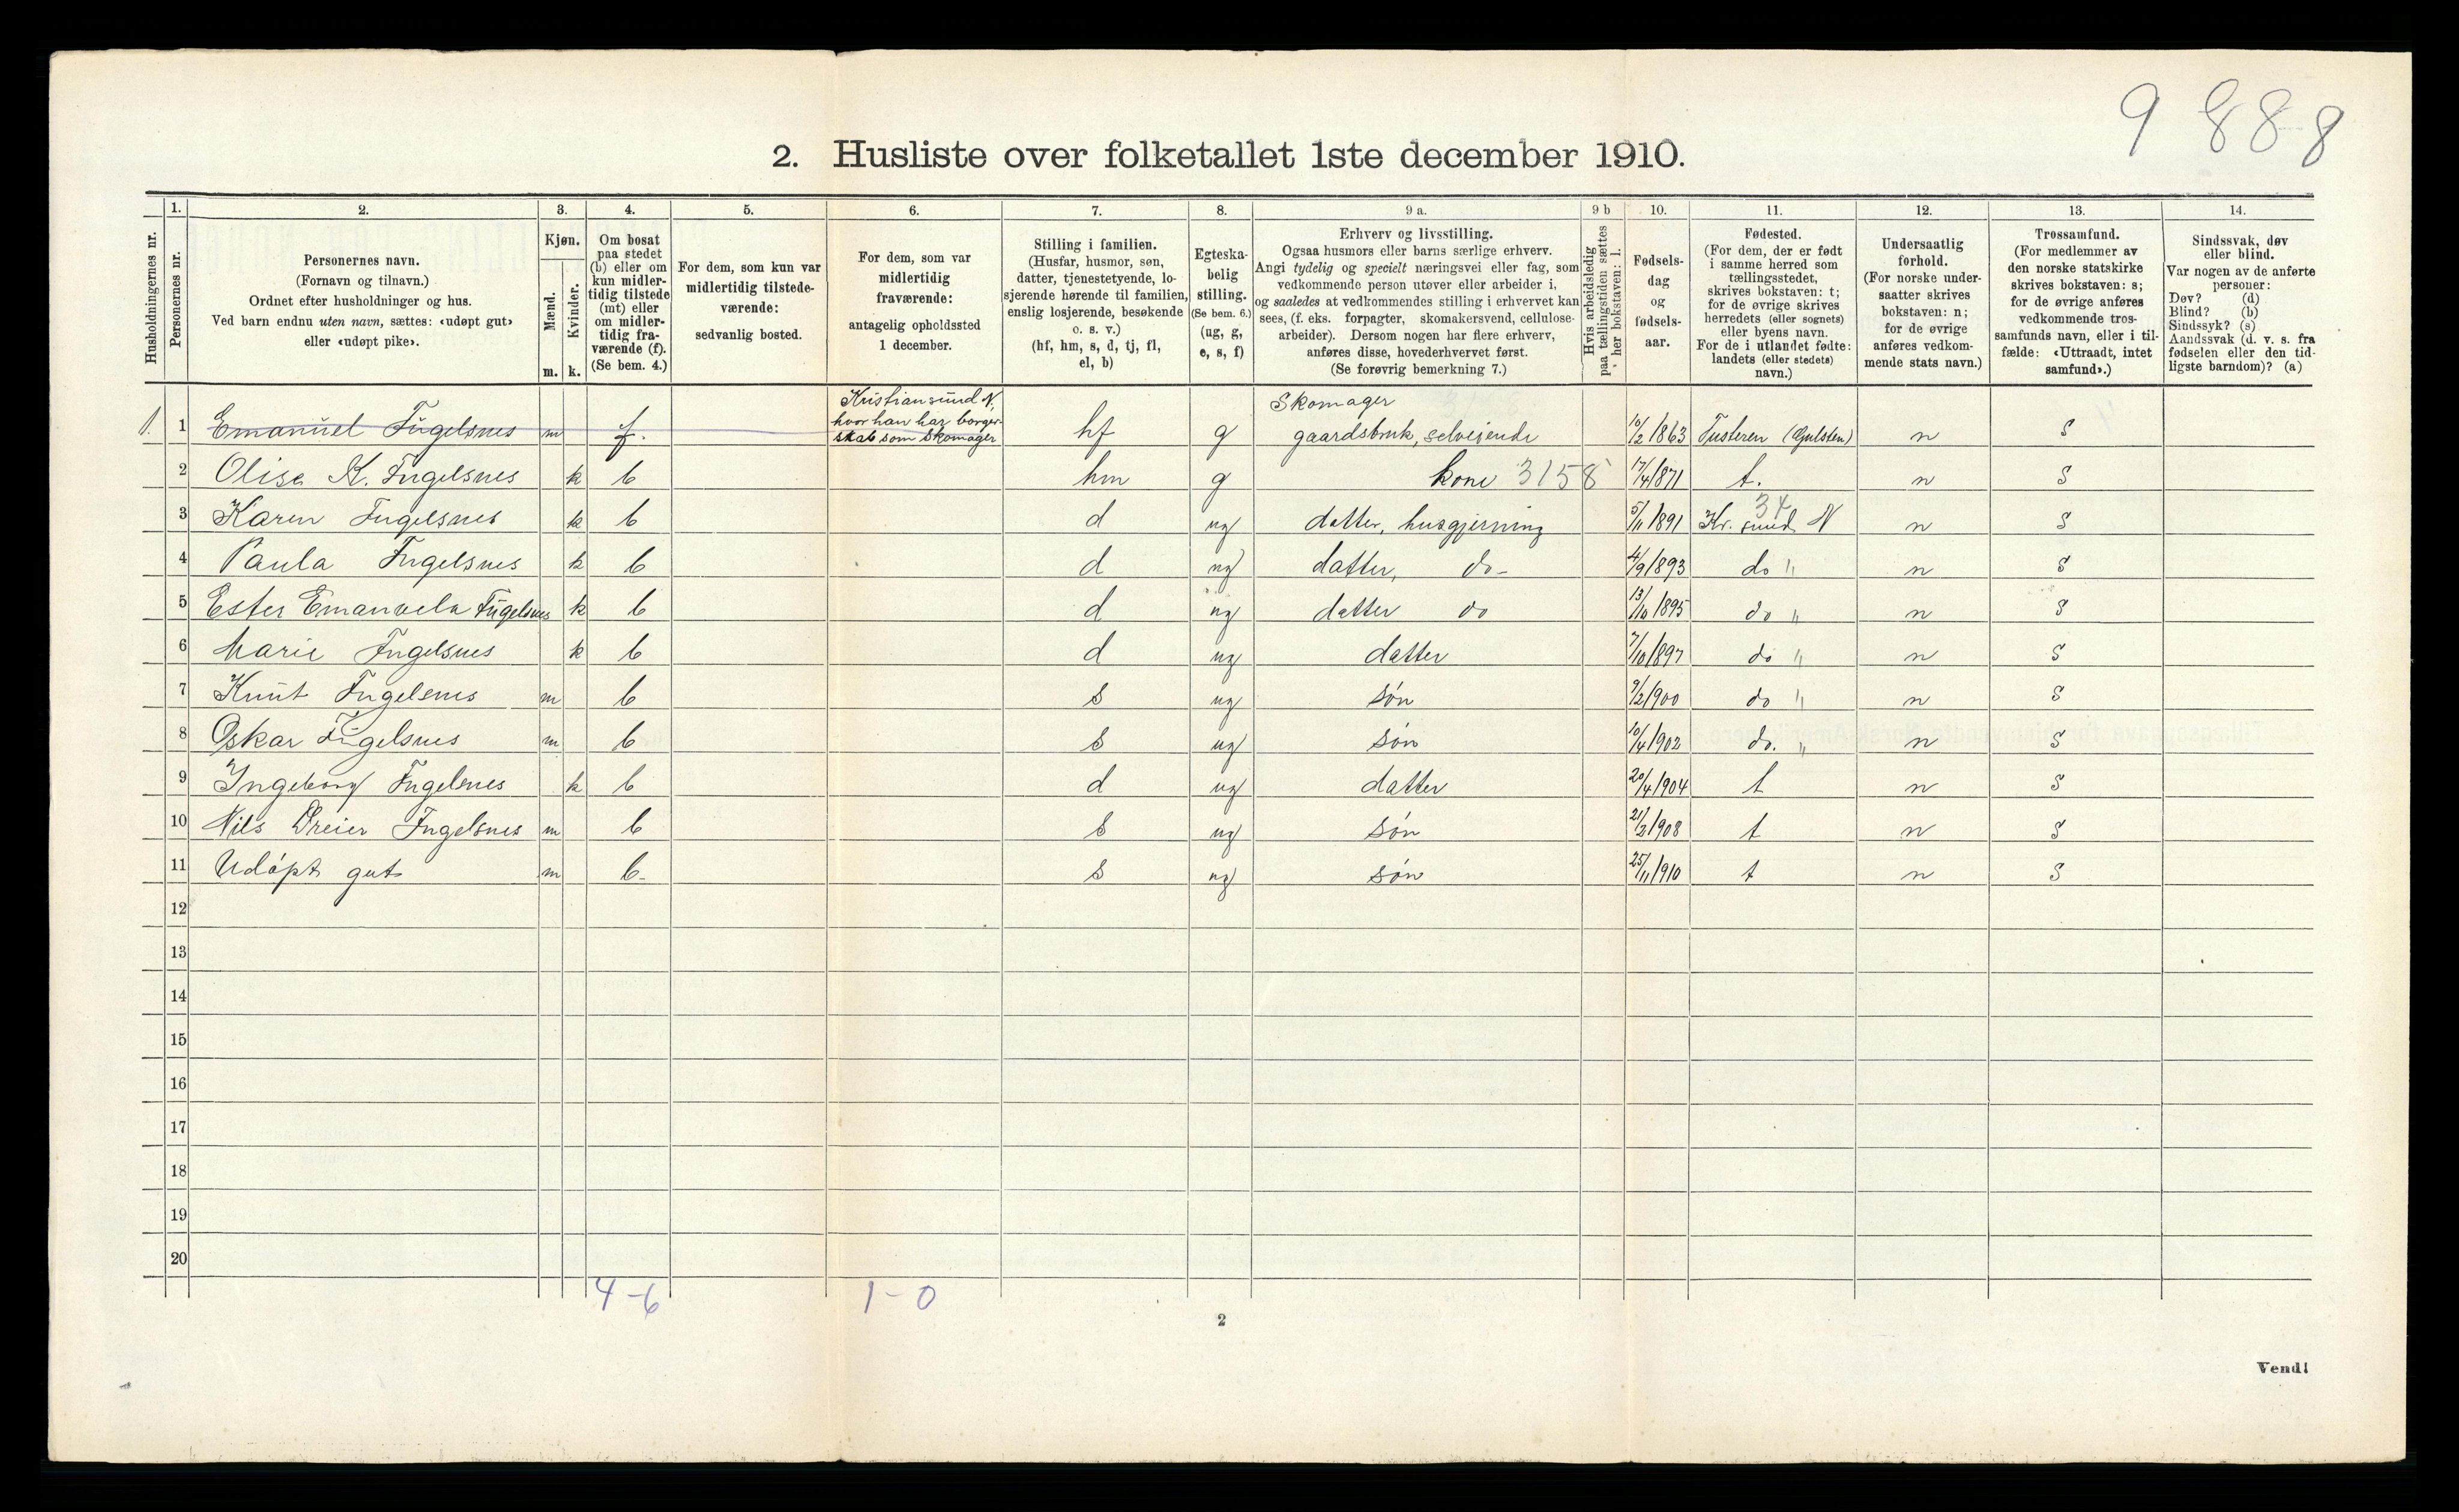 9 888
2. Husliste over folketallet 1ste december 1910.
Husholdningernes nr.
1.
Personernes nr.
2.
Personernes navn.
(Fornavn og tilnavn.)
Ordnet efter husholdninger og hus.
Ved barn endnu uten navn, sættes: «udøpt gut»
eller «udøpt pike».
3.
Kjøn.
Mænd.
Kvinder.
m. k.
4.
Om bosat
paa stedet
(b) eller om
kun midler-
tidig tilstede
(mt) eller
om midler-
tidig fra-
værende (f).
(Se bem. 4.)
5.
For dem, som kun var
midlertidig tilstede-
værende:
sedvanlig bosted.
6.
For dem, som var
midlertidig
fraværende:
antagelig opholdssted
1 december.
7.
Stilling i familien.
(Husfar, husmor, søn,
datter, tjenestetyende, lo-
sjerende hørende til familien,
enslig losjerende, besøkende
o. s. v.)
(hf, hm, s, d, tj, fl,
el, b)
8.
Egteska-
belig
stilling.
(Se bem. 6.)
(ug, g,
e, s, f)
9 a.
Erhverv og livsstilling.
Ogsaa husmors eller barns særlige erhverv.
Angi tydelig og specielt næringsvei eller fag, som
vedkommende person utøver eller arbeider i,
og saaledes at vedkommendes stilling i erhvervet kan
sees, (f. eks. forpagter, skomakersvend, cellulose-
arbeider). Dersom nogen har flere erhverv,
anføres disse, hovederhvervet først.
(Se forøvrig bemerkning 7.)
9 b
Hvis arbeidsledig
paa tællingstiden sættes
her bokstaven: l.
10.
Fødsels-
dag
og
fødsels-
aar.
11.
Fødested.
(For dem, der er født
i samme herred som
tællingsstedet,
skrives bokstaven: t;
for de øvrige skrives
herredets (eller sognets)
eller byens navn.
For de i utlandet fødte:
landets (eller stedets)
navn.)
12.
Undersaatlig
forhold.
(For norske under-
saatter skrives
bokstaven: n;
for de øvrige
anføres vedkom-
mende stats navn.)
13.
Trossamfund.
(For medlemmer av
den norske statskirke
skrives bokstaven: s;
for de øvrige anføres
vedkommende tros-
samfunds navn, eller i til-
fælde: «Uttraadt, intet
samfund».)
14.
Sindssvak, døv
eller blind.
Var nogen av de anførte
personer:
Døv? (d)
Blind? (b)
Sindssyk? (s)
Aandssvak (d. v. s. fra
fødselen eller den tid-
ligste barndom)? (a)
Kristiansund N,
hvor han har borger-
skab som Skomager
Skomager
1. 1 Emanuel Fugelsnes m f. hf g gaardsbruk, selveiende 10/2 1863 Tusteren n S
2 Olise K. Fugelsnes k b hm g kone 3158 17/4 1871 t. n S
34
3 Karen Fugelsnes k b d ug datter, husgjerning 5/11 1891 Kr. sund N n S
4 Paula Fugelsnes k b d ug datter, do- 4/9 1893 do " n S
5 Ester Emanuela Fugelsnes k b d ug datter do 13/10 1895 do " n S
6 Marie Fugelsnes k b d ug datter 7/10 1897 do " n S
7 Knut Fugelsnes m b s ug søn 9/2 1900 do " n S
8 Oskar Fugelsnes m b s ug søn 10/4 1902 do. " n S
9 Ingeborg Fugelsnes k b d ug datter 20/4 1904 t n S
10 Nils Dreier Fugelsnes m b s ug søn 21/2 1908 t n S
11 Udøpt gut m b- s ug søn 25/11 1910 t n S
12
13
14
15
16
17
18
19
20
4-6 1-0
2
Vend!